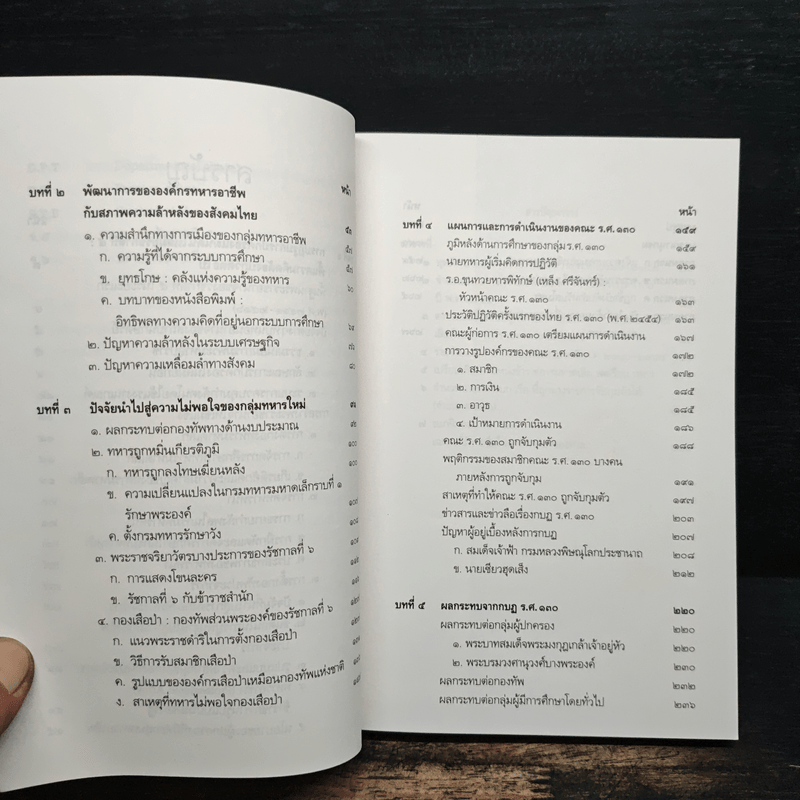 บทที่ ๒ พัฒนาการขององค์กรทหารอาชีพ หน้า
กับสภาพความล้าหลังของสังคมไทย
๑. ความสำนึกทางการเมืองของกลุ่มทหารอาชีพ
ก. ความรู้ที่ได้จากระบบการศึกษา
ข. ยุทธโกษ : คลังแห่งความรู้ของทหาร
ค. บทบาทของหนังสือพิมพ์ :
อิทธิพลทางความคิดที่อยู่นอกระบบการศึกษา
๒. ปัญหาความล้าหลังในระบบเศรษฐกิจ
๓. ปัญหาความเหลื่อมล้ำทางสังคม
บทที่ ๓ ปัจจัยนำไปสู่ความไม่พอใจของกลุ่มทหารใหม่
๑. ผลกระทบต่อกองทัพทางด้านงบประมาณ
๒. ทหารถูกหมิ่นเกียรติภูมิ ๑๐๐
ก. ทหารถูกลงโทษเฆี่ยนหลัง ๑๐๐
ข. ความเปลี่ยนแปลงในกรมทหารมหาดเล็กราบที่ ๑
รักษาพระองค์
ค. ตั้งกรมทหารรักษาวัง
๓. พระราชจริยาวัตรบางประการของรัชกาลที่ ๖
ก. การแสดงโขนละคร
ข. รัชกาลที่ ๖ กับข้าราชสำนัก
๔. กองเสือป่า : กองทัพส่วนพระองค์ของรัชกาลที่ ๖
ก. แนวพระราชดำริในการตั้งกองเสือป่า
ข. วิธีการรับสมาชิกเสือป่า
ค. รูปแบบขององค์กรเสือป่าเหมือนกองทัพแห่งชาติ
ง. สาเหตุที่ทหารไม่พอใจกองเสือป่า
หน้า
บทที่ ๔ แผนการและการดำเนินงานของคณะ ร.ศ.๑๓๐ ๑๕๙
ภูมิหลังด้านการศึกษาของกลุ่ม ร.ศ.๑๓๐ ๑๕๙
นายทหารผู้เริ่มคิดการปฏิวัติ ๑๖๑
ร.อ.ขุนทวยหารพิทักษ์ (เหล็ง ศรีจันทร์) :
หัวหน้าคณะ ร.ศ.๑๓๐ ๑๖๓
ประวัติปฏิวัติครั้งแรกของไทย ร.ศ.๑๓๐ (พ.ศ.๒๔๕๔) ๑๖๓
คณะผู้ก่อการ ร.ศ.๑๓๐ เตรียมแผนการดำเนินงาน ๑๖๗
การวางรูปองค์กรของคณะ ร.ศ.๑๓๐ ๑๗๒
๑. สมาชิก ๑๗๒
๒. การเงิน ๑๘๕
๓. อาวุธ ๑๘๕
๔. เป้าหมายการดำเนินงาน ๑๘๖
คณะ ร.ศ.๑๓๐ ถูกจับกุมตัว ๑๘๘
พฤติกรรมของสมาชิกคณะ ร.ศ.๑๓๐ บางคน
ภายหลังการถูกจับกุม ๑๙๑
สาเหตุที่ทำให้คณะ ร.ศ.๑๓๐ ถูกจับกุมตัว ๑๙๗
ข่าวสารและข่าวลือเรื่องกบฏ ร.ศ.๑๓๐ ๒๐๓
ปัญหาผู้อยู่เบื้องหลังการกบฏ ๒๐๗
ก. สมเด็จเจ้าฟ้า กรมหลวงพิษณุโลกประชานาถ ๒๐๘
ข. นายเซียวฮุดเส็ง ๒๑๒
บทที่ ๕ ผลกระทบจากกบฏ ร.ศ.๑๓๐ ๒๒๐
ผลกระทบต่อกลุ่มผู้ปกครอง ๒๒๐
๑. พระบาทสมเด็จพระมงกุฎเกล้าเจ้าอยู่หัว ๒๒๐
๒. พระบรมวงศานุวงศ์บางพระองค์ ๒๓๐
ผลกระทบต่อกองทัพ ๒๓๒
ผลกระทบต่อกลุ่มผู้มีการศึกษาโดยทั่วไป ๒๓๖